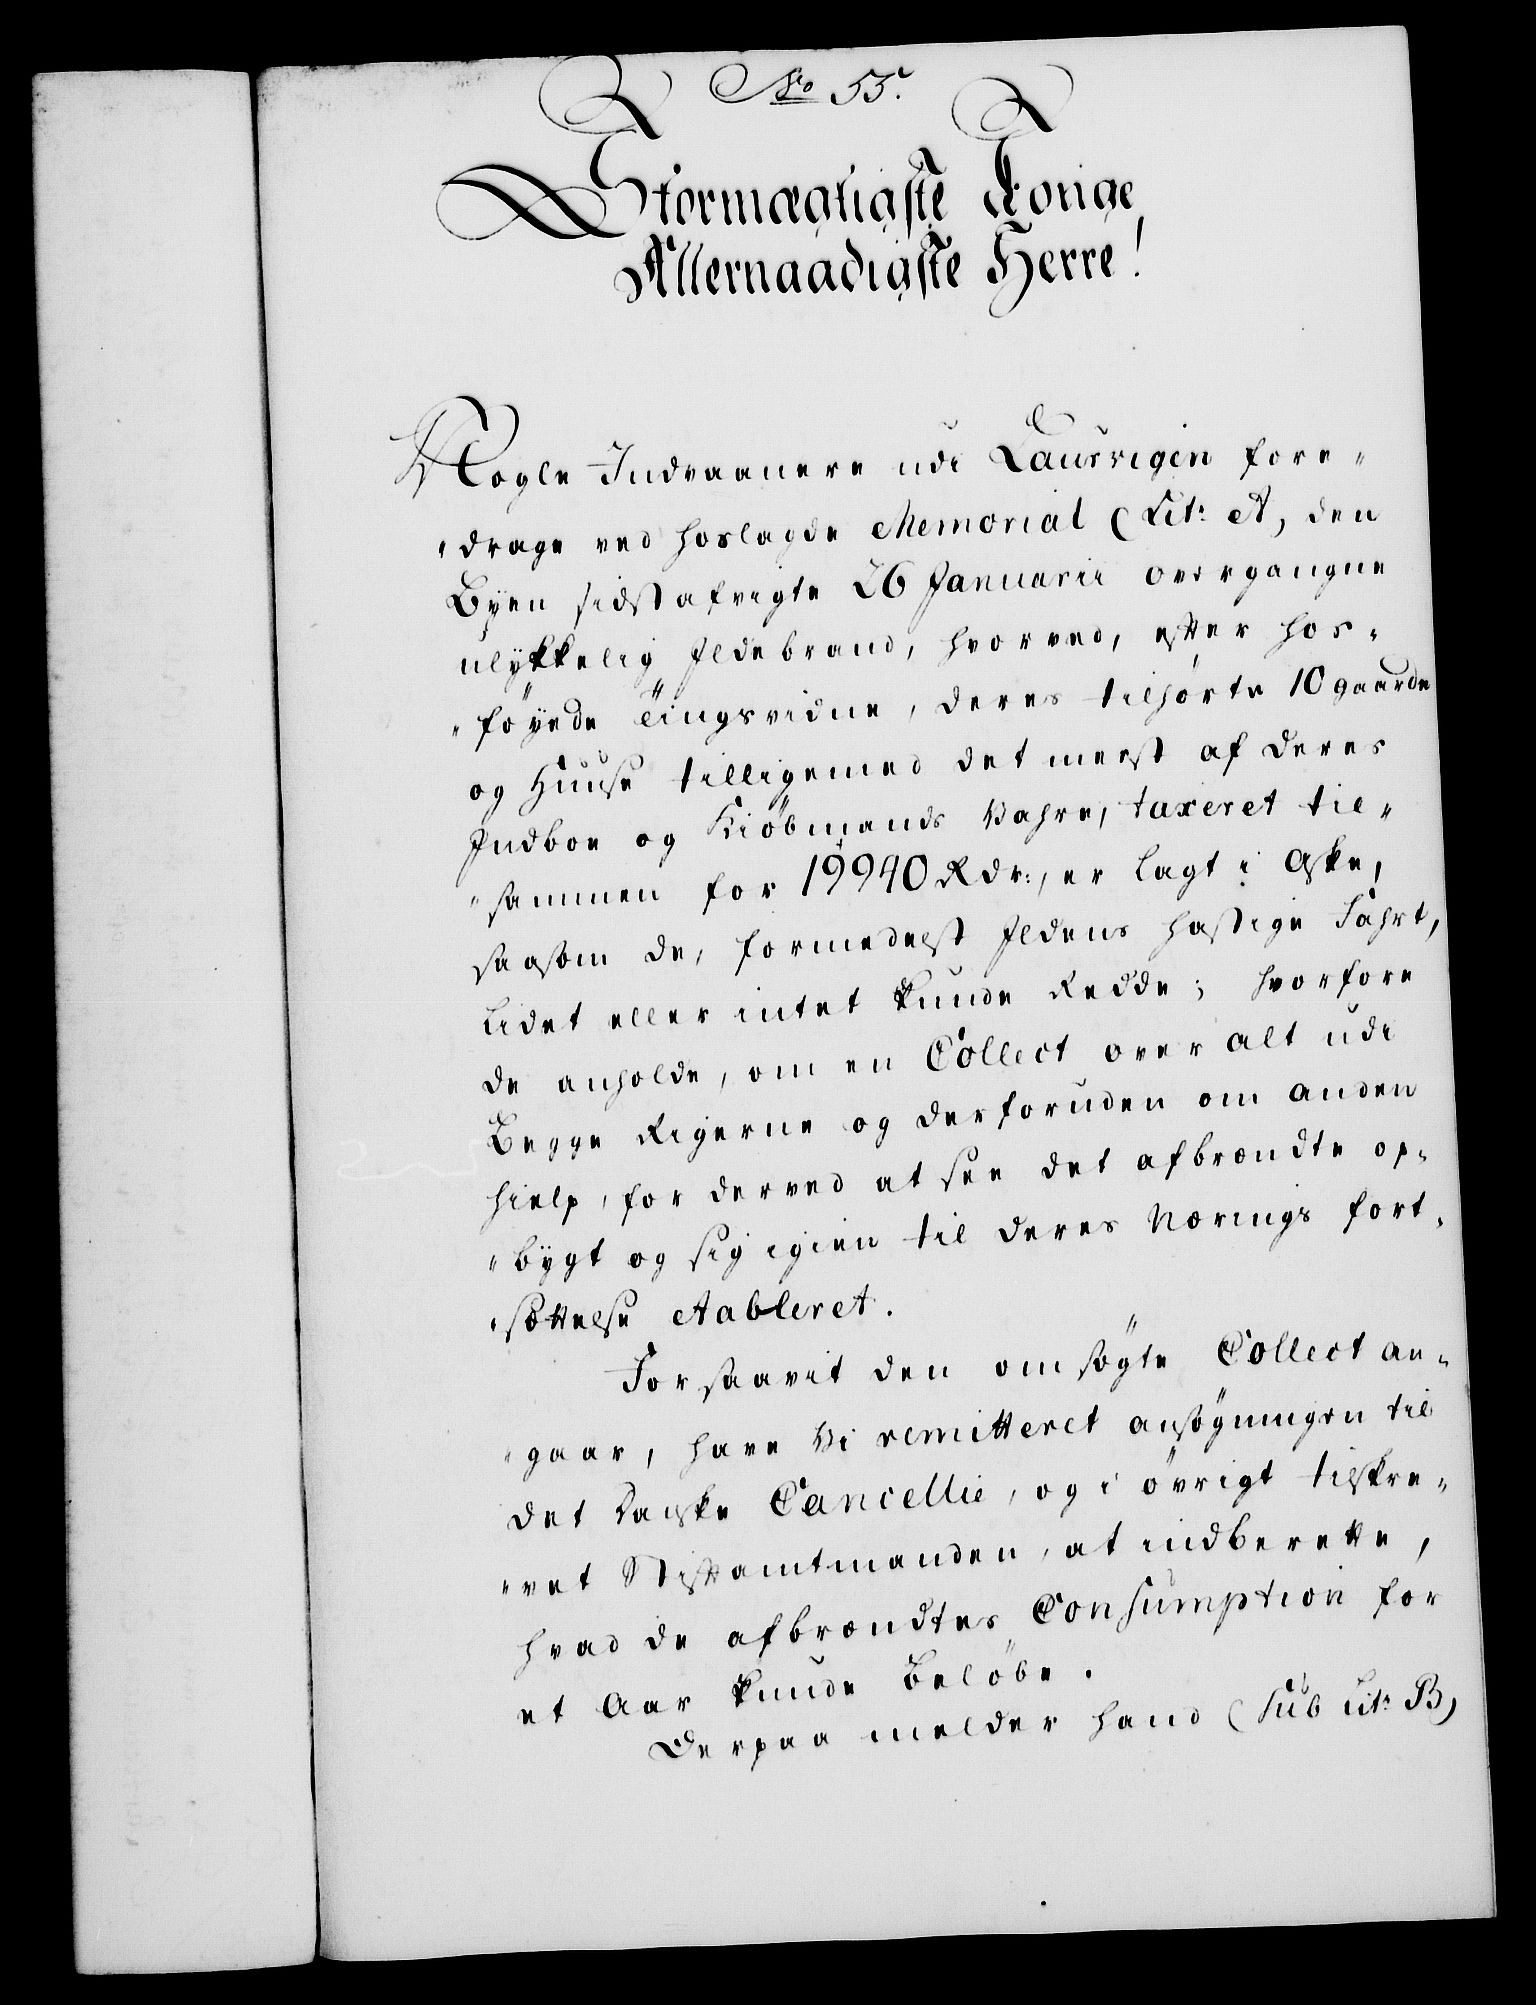 No 55.
Stormægtigste Konge
Allernaadigste Herre!
Nogle Indvaanere udi Laurvigen fore-
drage ved hoslagde Memorial (Litr A, den
Byen sidstafvigte 26 Januarii overgangne
ulykkelig Ildebrand, hvorved, efter hos-
föyede Tingsvidne, deres tilhørte 10 gaarde
og Huuse tilligemed det meest af deres
Indboe og Kiöbmands Vahre, taxeret til-
sammen for 19940 Rdr:, er lagt i Aske,
saasom de, formedelst Ildens hastige Fahrt,
Lidet eller intet kunde Redde; hvorfore
de anholde, om en Collect over alt udi
Begge Rigerne og derforuden om anden
hielp, for derved at see det afbrændte op-
bygt og sig igien til deres Nærings fort-
sættelse etableret.
Forsaavit den omsøgte Collect an-
gaar, have Vi remitteret ansøgningen til
det Danske Cancellie, og i övrigt tilskre-
vet Stiftamtmanden, at indberette,
hvad de afbrændtes Consumption for
et Aar kunde Belöbe.
Derpaa melder hand (Sub Litr B,